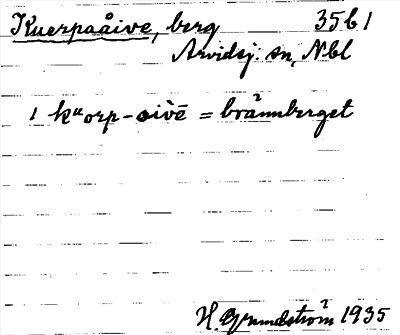 Kuerpaåive, berg 35b1
Arvidsj. sn, Nbl
1 kᵘorp-oìvē = brännberget
H. Grundström 1935